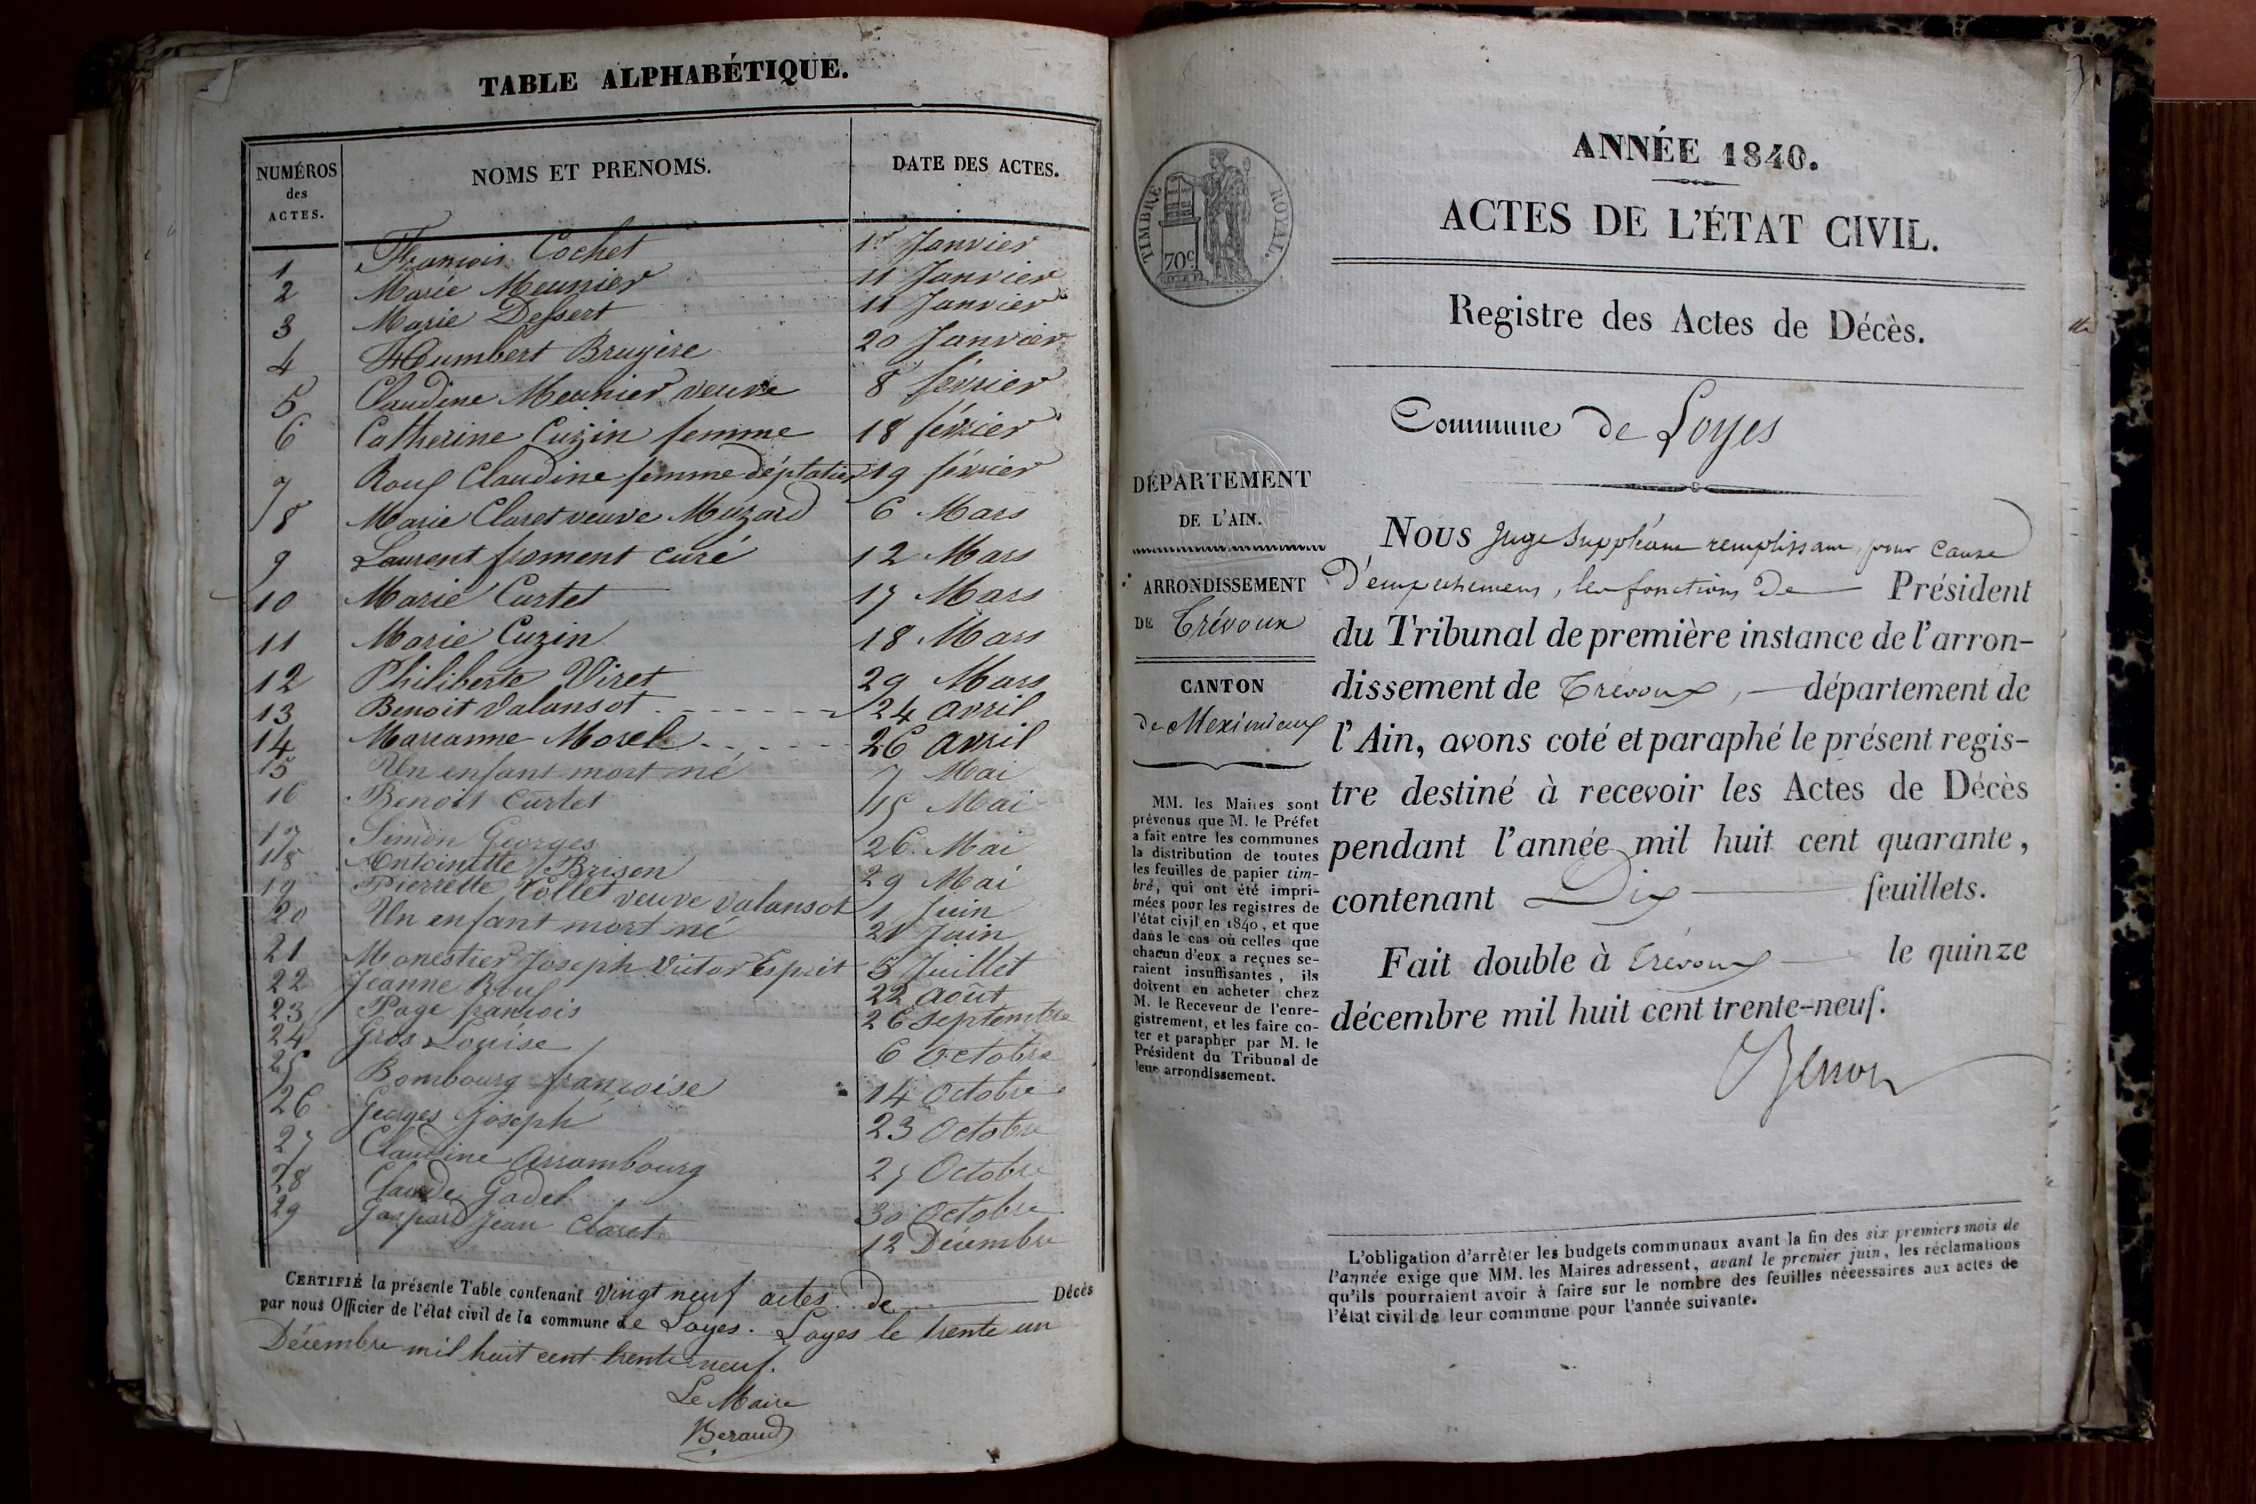 TABLE ALPHABÉTIQUE.
NUMÉROS des ACTES. NOMS ET PRENOMS. DATE DES ACTES.
1 François Cochet 1r Janvier
2 Marie Meunier 11 Janvier
3 Marie Dessert 11 Janvier
4 Humbert Bruyere 20 Janvier
5 Claudine Meunier veuve 8 février
6 Catherine Cuzin femme 18 février
7 Roux Claudine femme déplatier 19 février
8 Marie Claret veuve Muzard 6 Mars
9 Laurent froment curé 12 Mars
10 Marie Curtet 17 Mars
11 Marie Cuzin 18 Mars
12 Philiberte Viret 29 Mars
13 Benoit Valansot 24 avril
14 Marianne Morel 26 avril
15 Un enfant mort né 7 Mai
16 Benoit Curtet 15 Mai
17 Simon Georges 26 Mai
18 Antoinette Brison 29 Mai
19 Pierrette Collet veuve valansot 1 Juin
20 Un enfant mort né 21 Juin
21 Monestier Joseph Victor Esprit 5 Juillet
22 Jeanne Roux 22 août
23 Page françois 26 septembre
24 Gros Louise 6 Octobre
25 Bombourg françoise 14 Octobre
26 Georges Joseph 23 Octobre
27 Claudine Arrambourg 25 Octobre
28 Claude Gadel 30 Octobre
29 Gaspard Jean Claret 12 Décembre
CERTIFIÉ la présente Table contenant Vingt neuf actes de Décès
par nous Officier de l'état civil de la commune de Loyes. Loyes le trente un
Décembre mil huit cent trente neuf.
Le Maire
Beraud
TIMBRE ROYAL.
70c
ANNÉE 1840.
ACTES DE L'ÉTAT CIVIL.
Registre des Actes de Décès.
Commune de Loyes
DÉPARTEMENT
DE L'AIN.
ARRONDISSEMENT
DE Trévoux
CANTON
de Meximieux
MM. les Maires sont
prévenus que M. le Préfet
a fait entre les communes
la distribution de toutes
les feuilles de papier tim-
bré, qui ont été impri-
mées pour les registres de
l'état civil en 1840, et que
dans le cas où celles que
chacun d'eux a reçues se-
raient insuffisantes, ils
doivent en acheter chez
M. le Receveur de l'enre-
gistrement, et les faire co-
ter et parapher par M. le
Président du Tribunal de
leur arrondissement.
NOUS Juge Suppléant remplissant, pour cause
D'empechement, les fonctions De Président
du Tribunal de première instance de l'arron-
dissement de Trévoux, département de
l'Ain, avons coté et paraphé le présent regis-
tre destiné à recevoir les Actes de Décès
pendant l'année mil huit cent quarante,
contenant Dix feuillets.
Fait double à Trévoux le quinze
décembre mil huit cent trente-neuf.
L'obligation d'arrêter les budgets communaux avant la fin des six premiers mois de
l'année exige que MM. les Maires adressent, avant le premier juin, les réclamations
qu'ils pourraient avoir à faire sur le nombre des feuilles nécessaires aux actes de
l'état civil de leur commune pour l'année suivante.